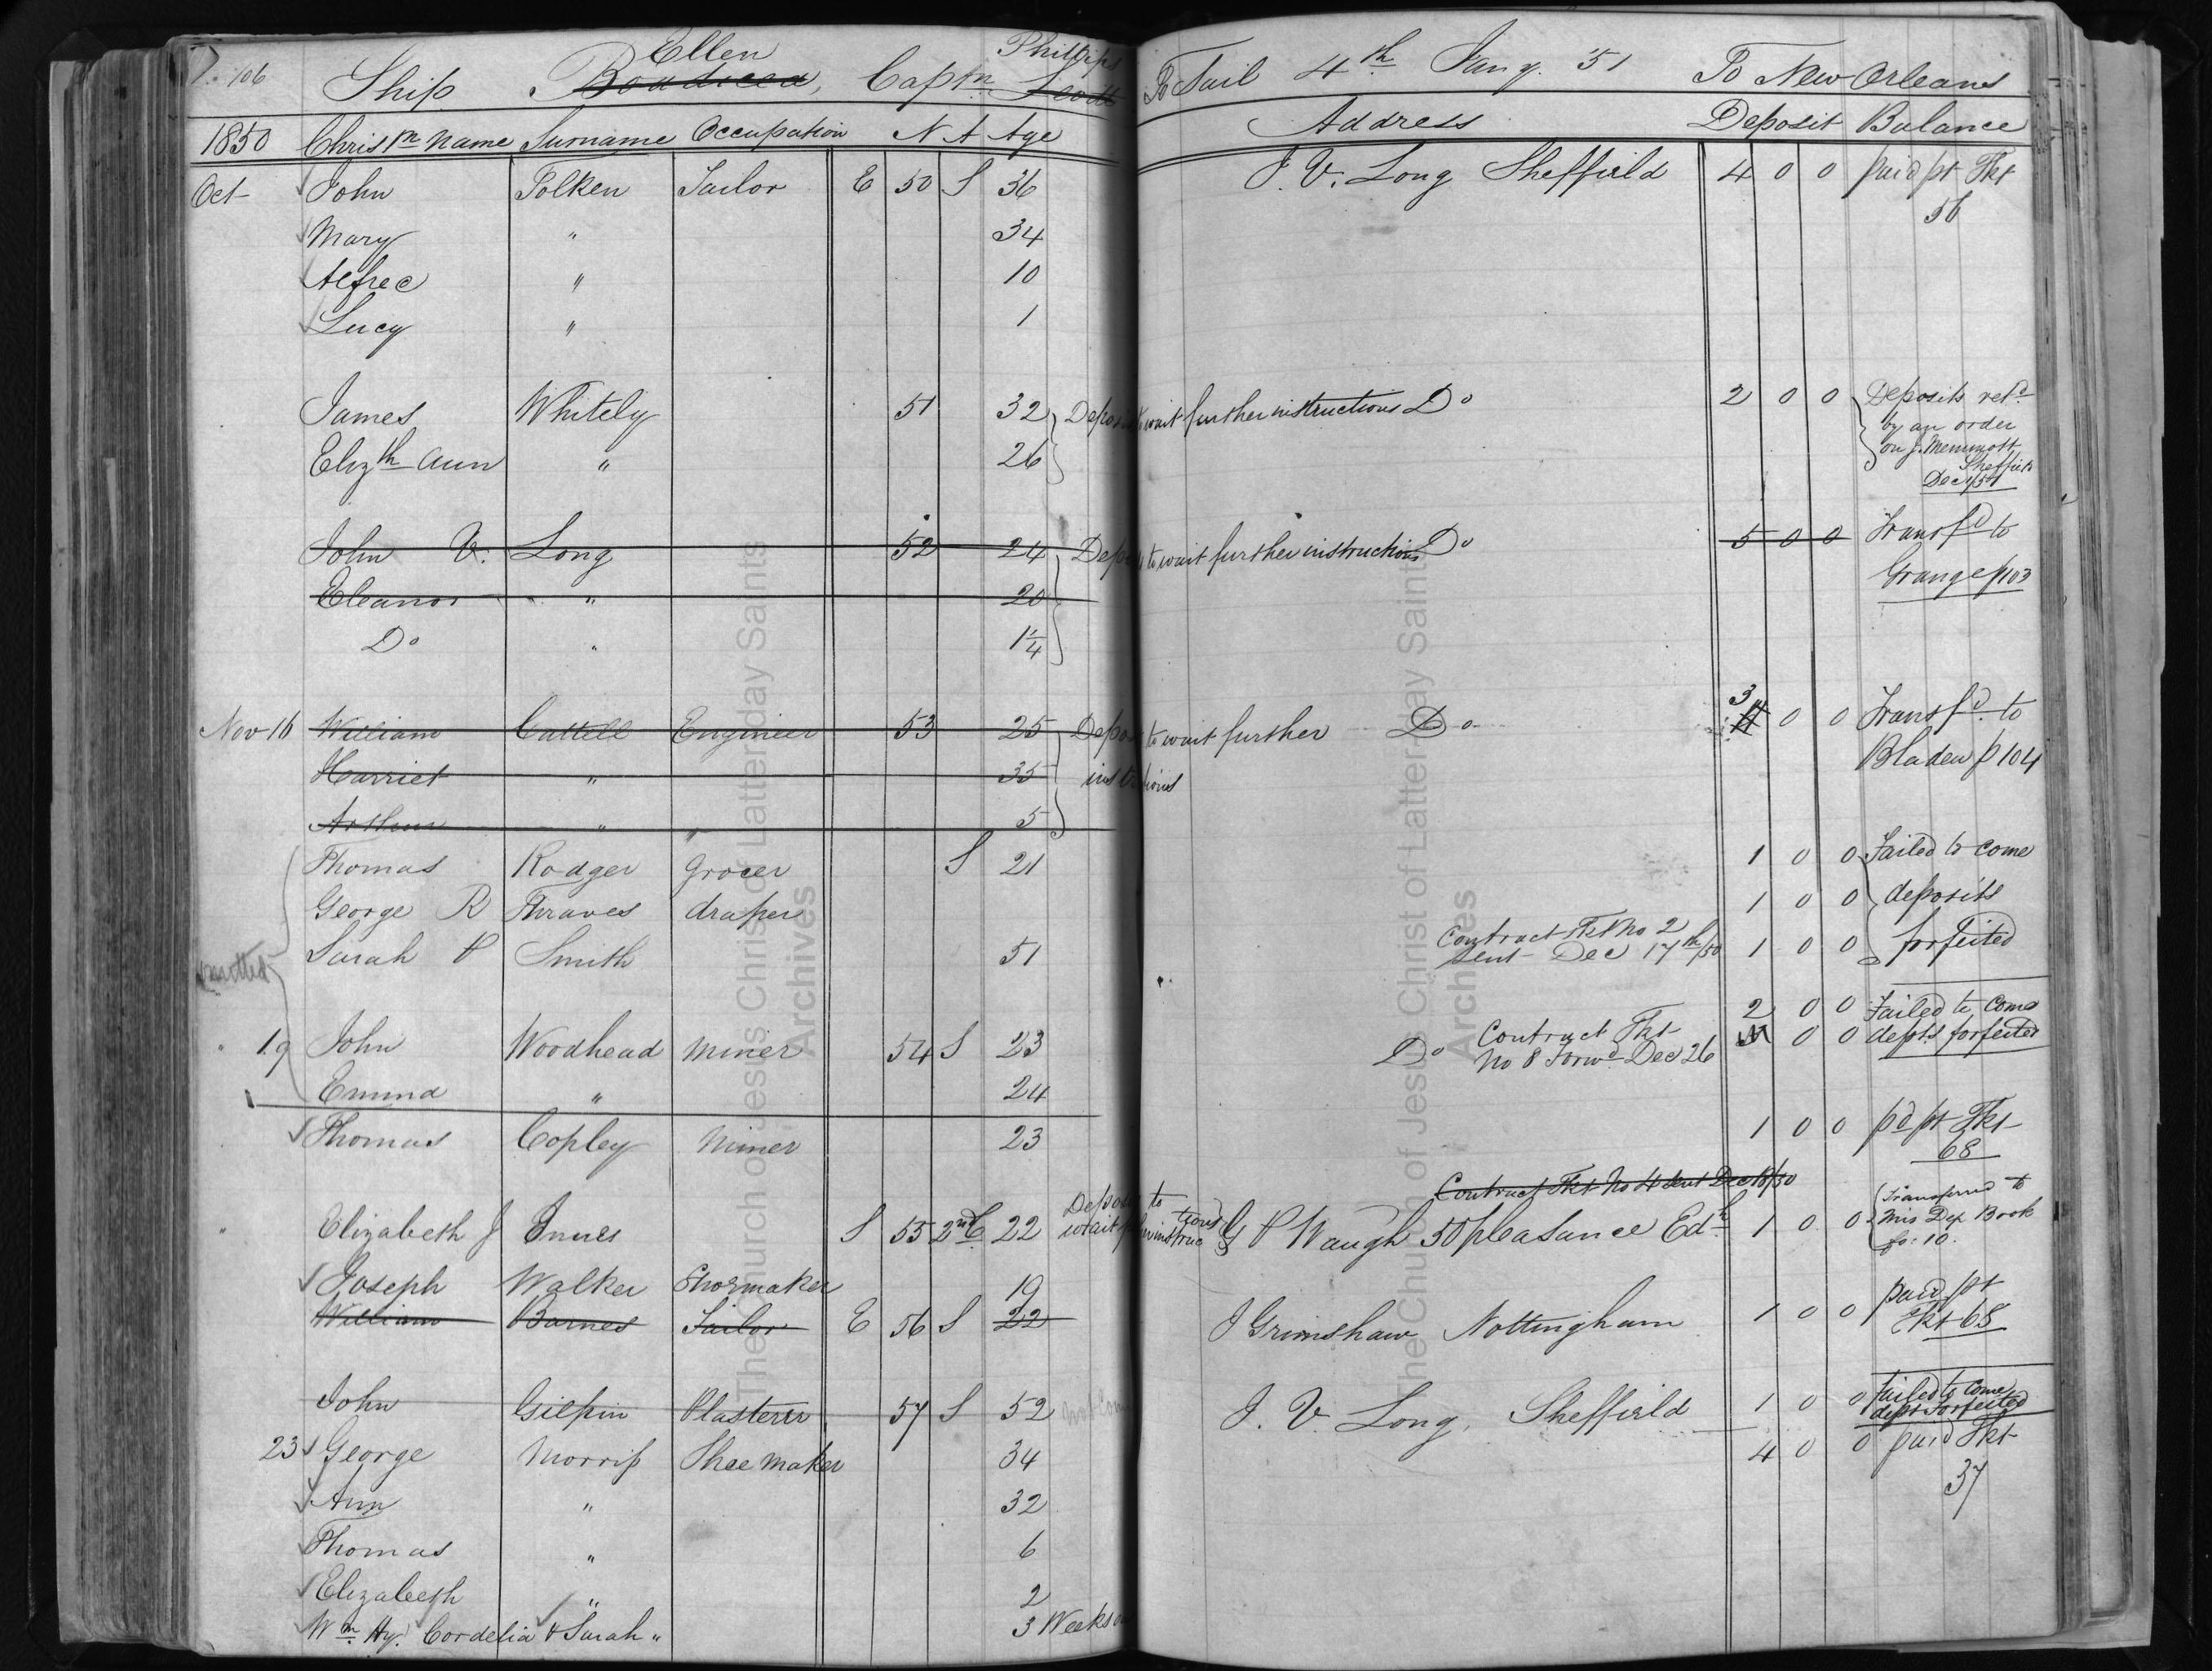 P. 106 Ship Ellen Boadicea, Captn Phillips Scott To Sail 4th Jany. 51 To New Orleans
1850 Chrisn name Surname Occupation N A Age Address Deposit Balance
Oct John Tolken Tailor E 50 S 36 J. V. Long Sheffield 4 0 0 paid pt Tkt
56
Mary " 34
Alfred " 10
Lucy " 1
James Whitely 51 32 wait further instructions Do 2 0 0 Deposits retd
by an order
Elizth Ann " 26 on J. Memmott
Sheffield
Dec
John V. Long 52 24 to wait further instructions Do 5 0 0 Transfd to
Eleanor " 20 Grange p103
Do " 1 1/4
3
Nov 16 William Cattell Engineer 53 25 to wait further Do 4 0 0 Transfd. to
Harriet " 35 instructions Bladen p 104
Arthur " " 5
Thomas Rodger Grocer S 21 1 0 0 Failed to come
George R Thraves draper 1 0 0 deposits
Contract Tkt No 2
Sarah P Smith 51 sent Dec 17th/50 1 0 0 forfeited
2 0 0 Failed to Come
19 John Woodhead Miner 54 S 23 Do Contract Tkt 0 0 depts forfeited
No 8 Forwd Dec 26
Emma " 24
Thomas Copley Miner 23 1 0 0 pd pt Tkt
68
Contract Tkt No 4 sent Dec 18/50
Elizabeth J Innes S 55 2nd C 22 Deposits to wait further instructions G P Waugh 50 pleasance Edh 1 0 0 Transferred to
Mis Dep Book
fo: 10.
Joseph Walker Shoemaker 19
William Barnes Tailor E 56 S 22 J Grimshaw Nottingham 1 0 0 paid pt
Tkt 68
John Gilpin Plasterer 57 S 52 J. V. Long, Sheffield 1 0 0 failed to come
dept forfeited
23 George Morris Shoe maker 34 4 0 0 paid Tkt
37
Ann " 32
Thomas " 6
Elizabeth " 2
Wm. Hy. Cordelia & Sarah " 3 Weeks
The Church of Jesus Christ of Latter-day Saints
Archives
The Church of Jesus Christ of Latter-day Saints
Archives